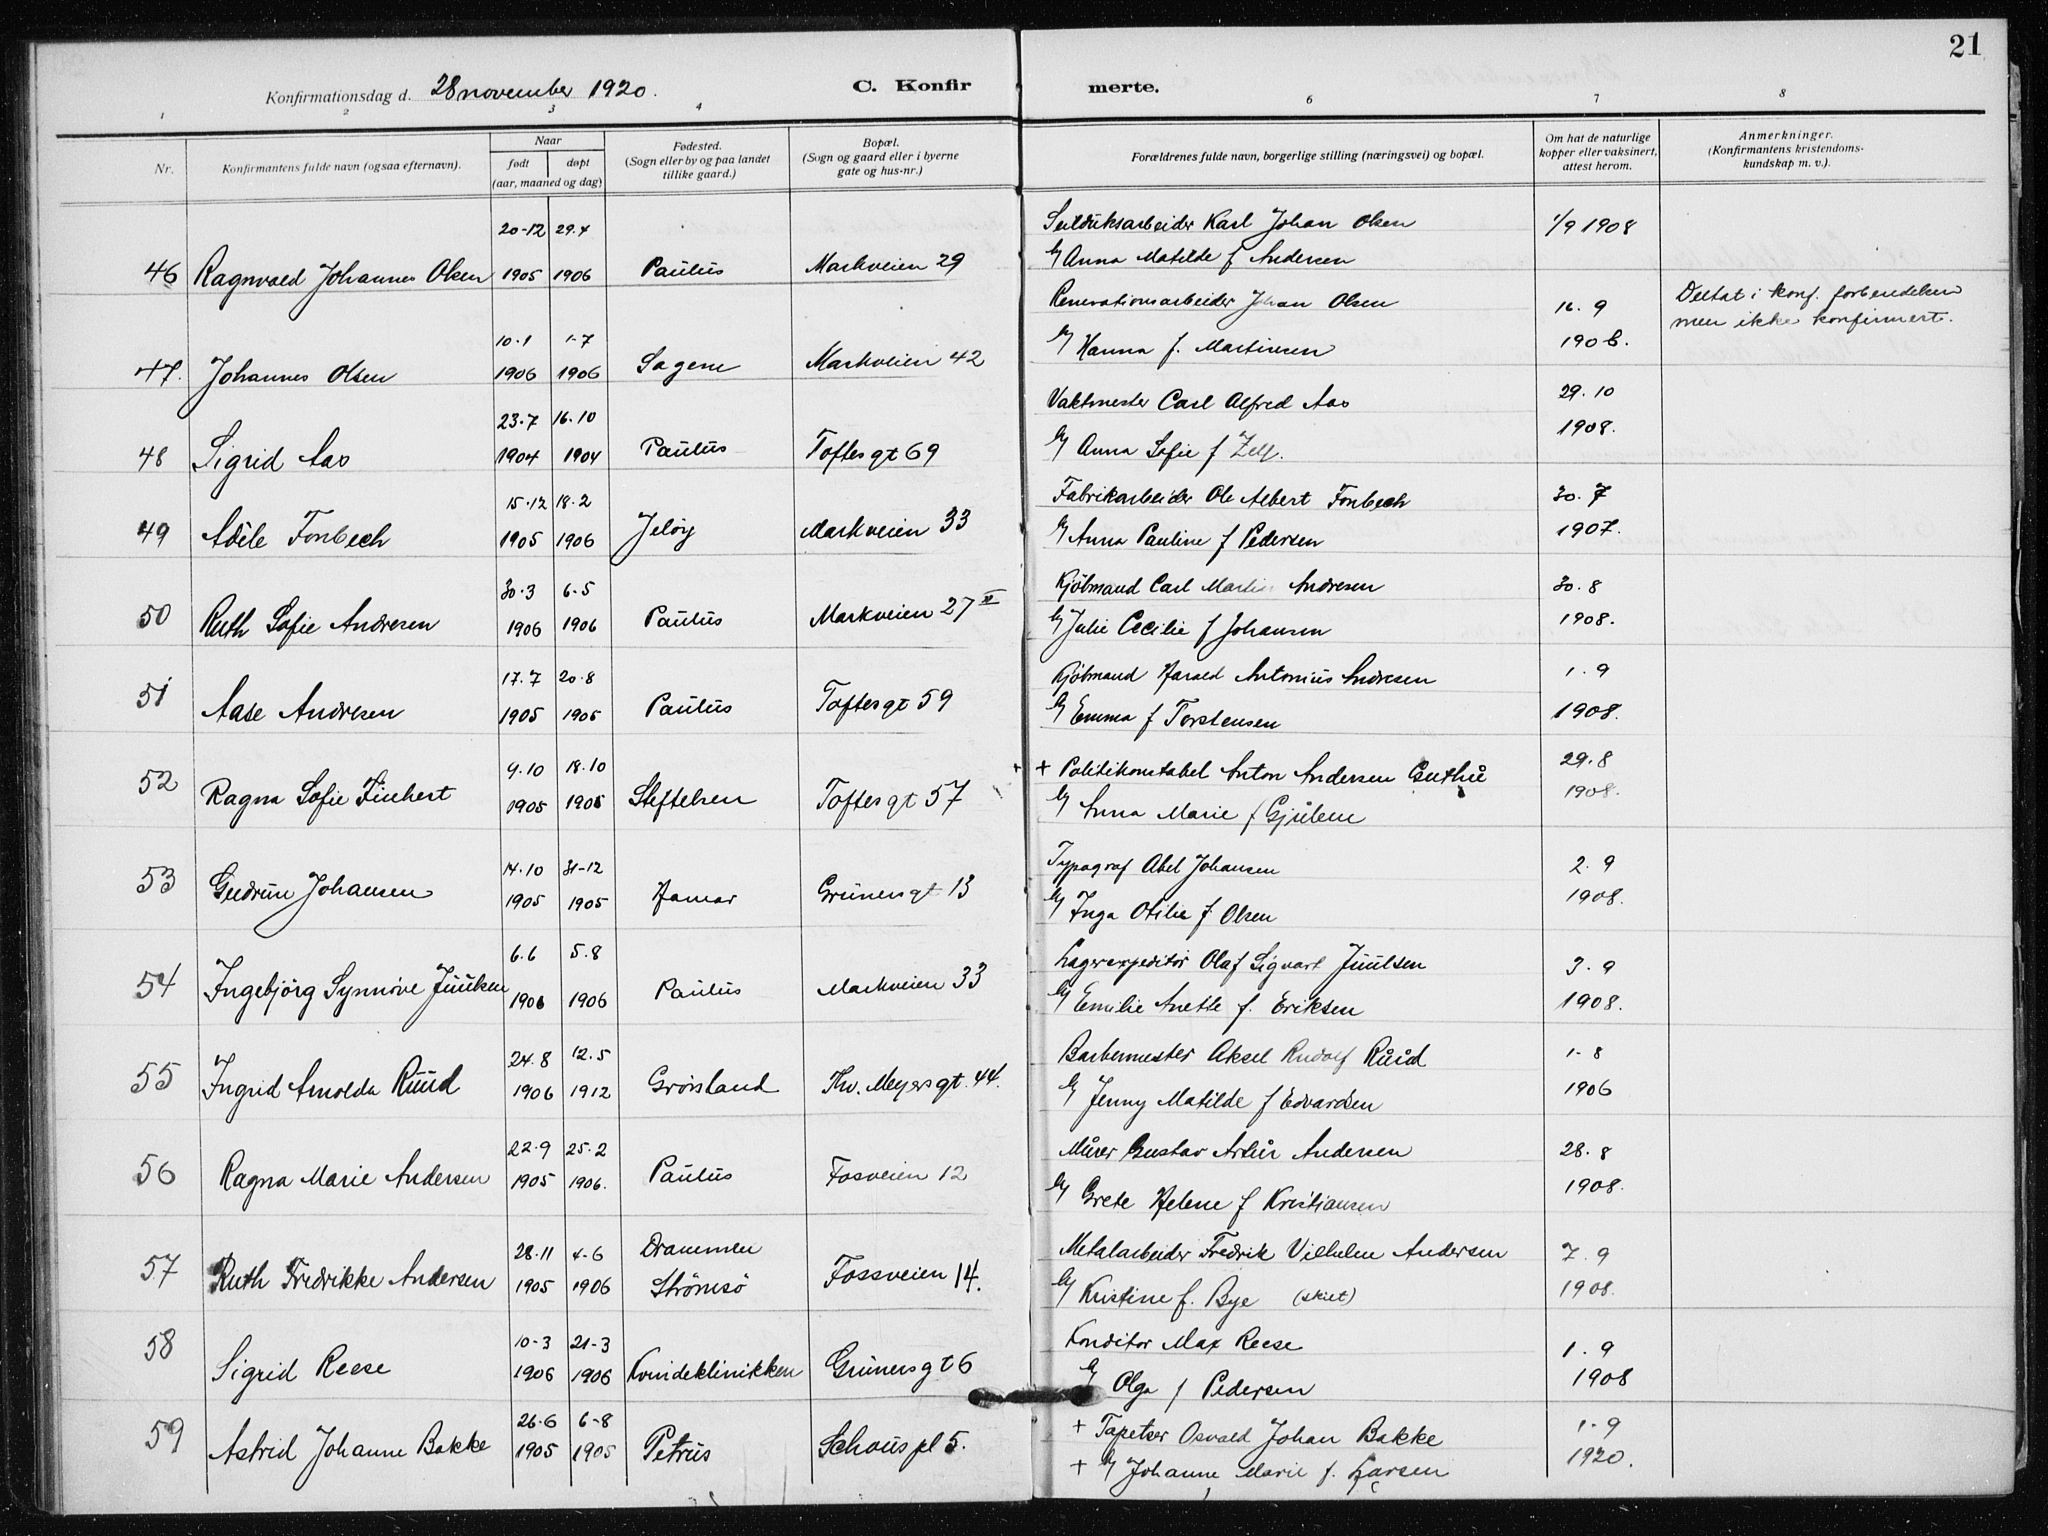 21
Konfirmationsdag d. 28 november 1920.
C. Konfirmerte.
1 2 3 4 6 7 8
Nr.
Konfirmantens fulde navn (ogsaa efternavn).
Naar
født døpt
(aar, maaned og dag)
Fødested.
(Sogn eller by og paa landet
tillike gaard.)
Bopæl.
(Sogn og gaard eller i byerne
gate og hus-nr.)
Forældrenes fulde navn, borgerlige stilling (næringsvei) og bopæl.
Om hat de naturlige
kopper eller vaksinert,
attest herom.
Anmerkninger.
(Konfirmantens kristendoms-
kundskap m. v.).
20-12 29.4 Seilduksarbeider Karl Johan Olsen 1/9 1908
46 Ragnvald Johannes Olsen 1905 1906 Paulus Markveien 29 Anna Matilde f Andersen
Renovationsarbeider Johan Olsen 16. 9 Deltat i konf. forberedelsen
men ikke konfirmert.
10.1 1-7
47. Johannes Olsen 1906 1906 Sagene Markveien 42 Hanna f. Martinsen 1908.
23.7 16.10 Vaktmester Carl Alfred Aas 29. 10
48 Sigrid Aas 1904 1904 Paulus Toftesgt 69 Anna Sofie f 1908.
15.12 18.2 Fabrikarbeider Ole Albert Fonbech 30. 7
49 Adéle Fonbech 1905 1906 Jeløy Markveien 33 Anna Pauline f Pedersen 1907.
30.3 6.5 Kjøbmand Carl Martin Andresen 30. 8
50 Ruth Sofie Andresen 1906 1906 Paulus Markveien 27 II Julie Cecilie f Johansen 1908.
17.7 20.8 Kjøbmand Harald Antonius Andresen 1. 9
51 Aase Andresen 1905 1905 Paulus Toftesgt 59 Emma f Torstensen 1908.
9.10 18.10 + Politikonstabel Anton Andersen 29.8
52 Ragna Sofie 1905 1905 Stiftelsen Toftesgt 57 Anna Marie f 1908.
14.10 31-12 Typograf Abel Johansen 2. 9
53 Gudrun Johansen 1905 1905 Hamar Grünersgt 13 Inga Otilie f. Olsen 1908.
6.6 5.8 Lagerexpeditør Olaf Sigvart Juulsen 3. 9
54 Ingebjörg Synnöve Juulsen 1906 1906 Paulus Markveien 33 Emilie Anette f. Eriksen 1908.
24.8 12.5 Barbermester Aksel Rudolf Ruud 1-8
55 Ingrid Arnolda Ruud 1906 1912 Grønland Thv. Meyersgt. 44. Jenny Matilde f Edvardsen 1906
22.9 25.2 Murer Gustav Artur Andersen 28. 8
56 Ragna Marie Andersen 1905 1906. Paulus Fosveien 12 Grete Helene f Kristiansen 1908.
28.11 4-6 Drammen Metalarbeider Fredrik Vilhelm Andersen 7. 9
57 Ruth Fredrikke Andersen 1905 1906 Strömsö Fossveien 14. Kristine f. Bye (skilt) 1908.
10-3 21-3 Konditor Max Reese 1. 9
58 Sigrid Reese 1906 1906 Kvindeklinikken Grünersgt 6 Olga f Pedersen 1908
26.6 6-8 + Tapetser Osvald Johan Bakke 1-9
59 Astrid Johanne Bakke 1905 1905 Petrus Schous pl 5. + Johanne Marie f. Larsen 1920.